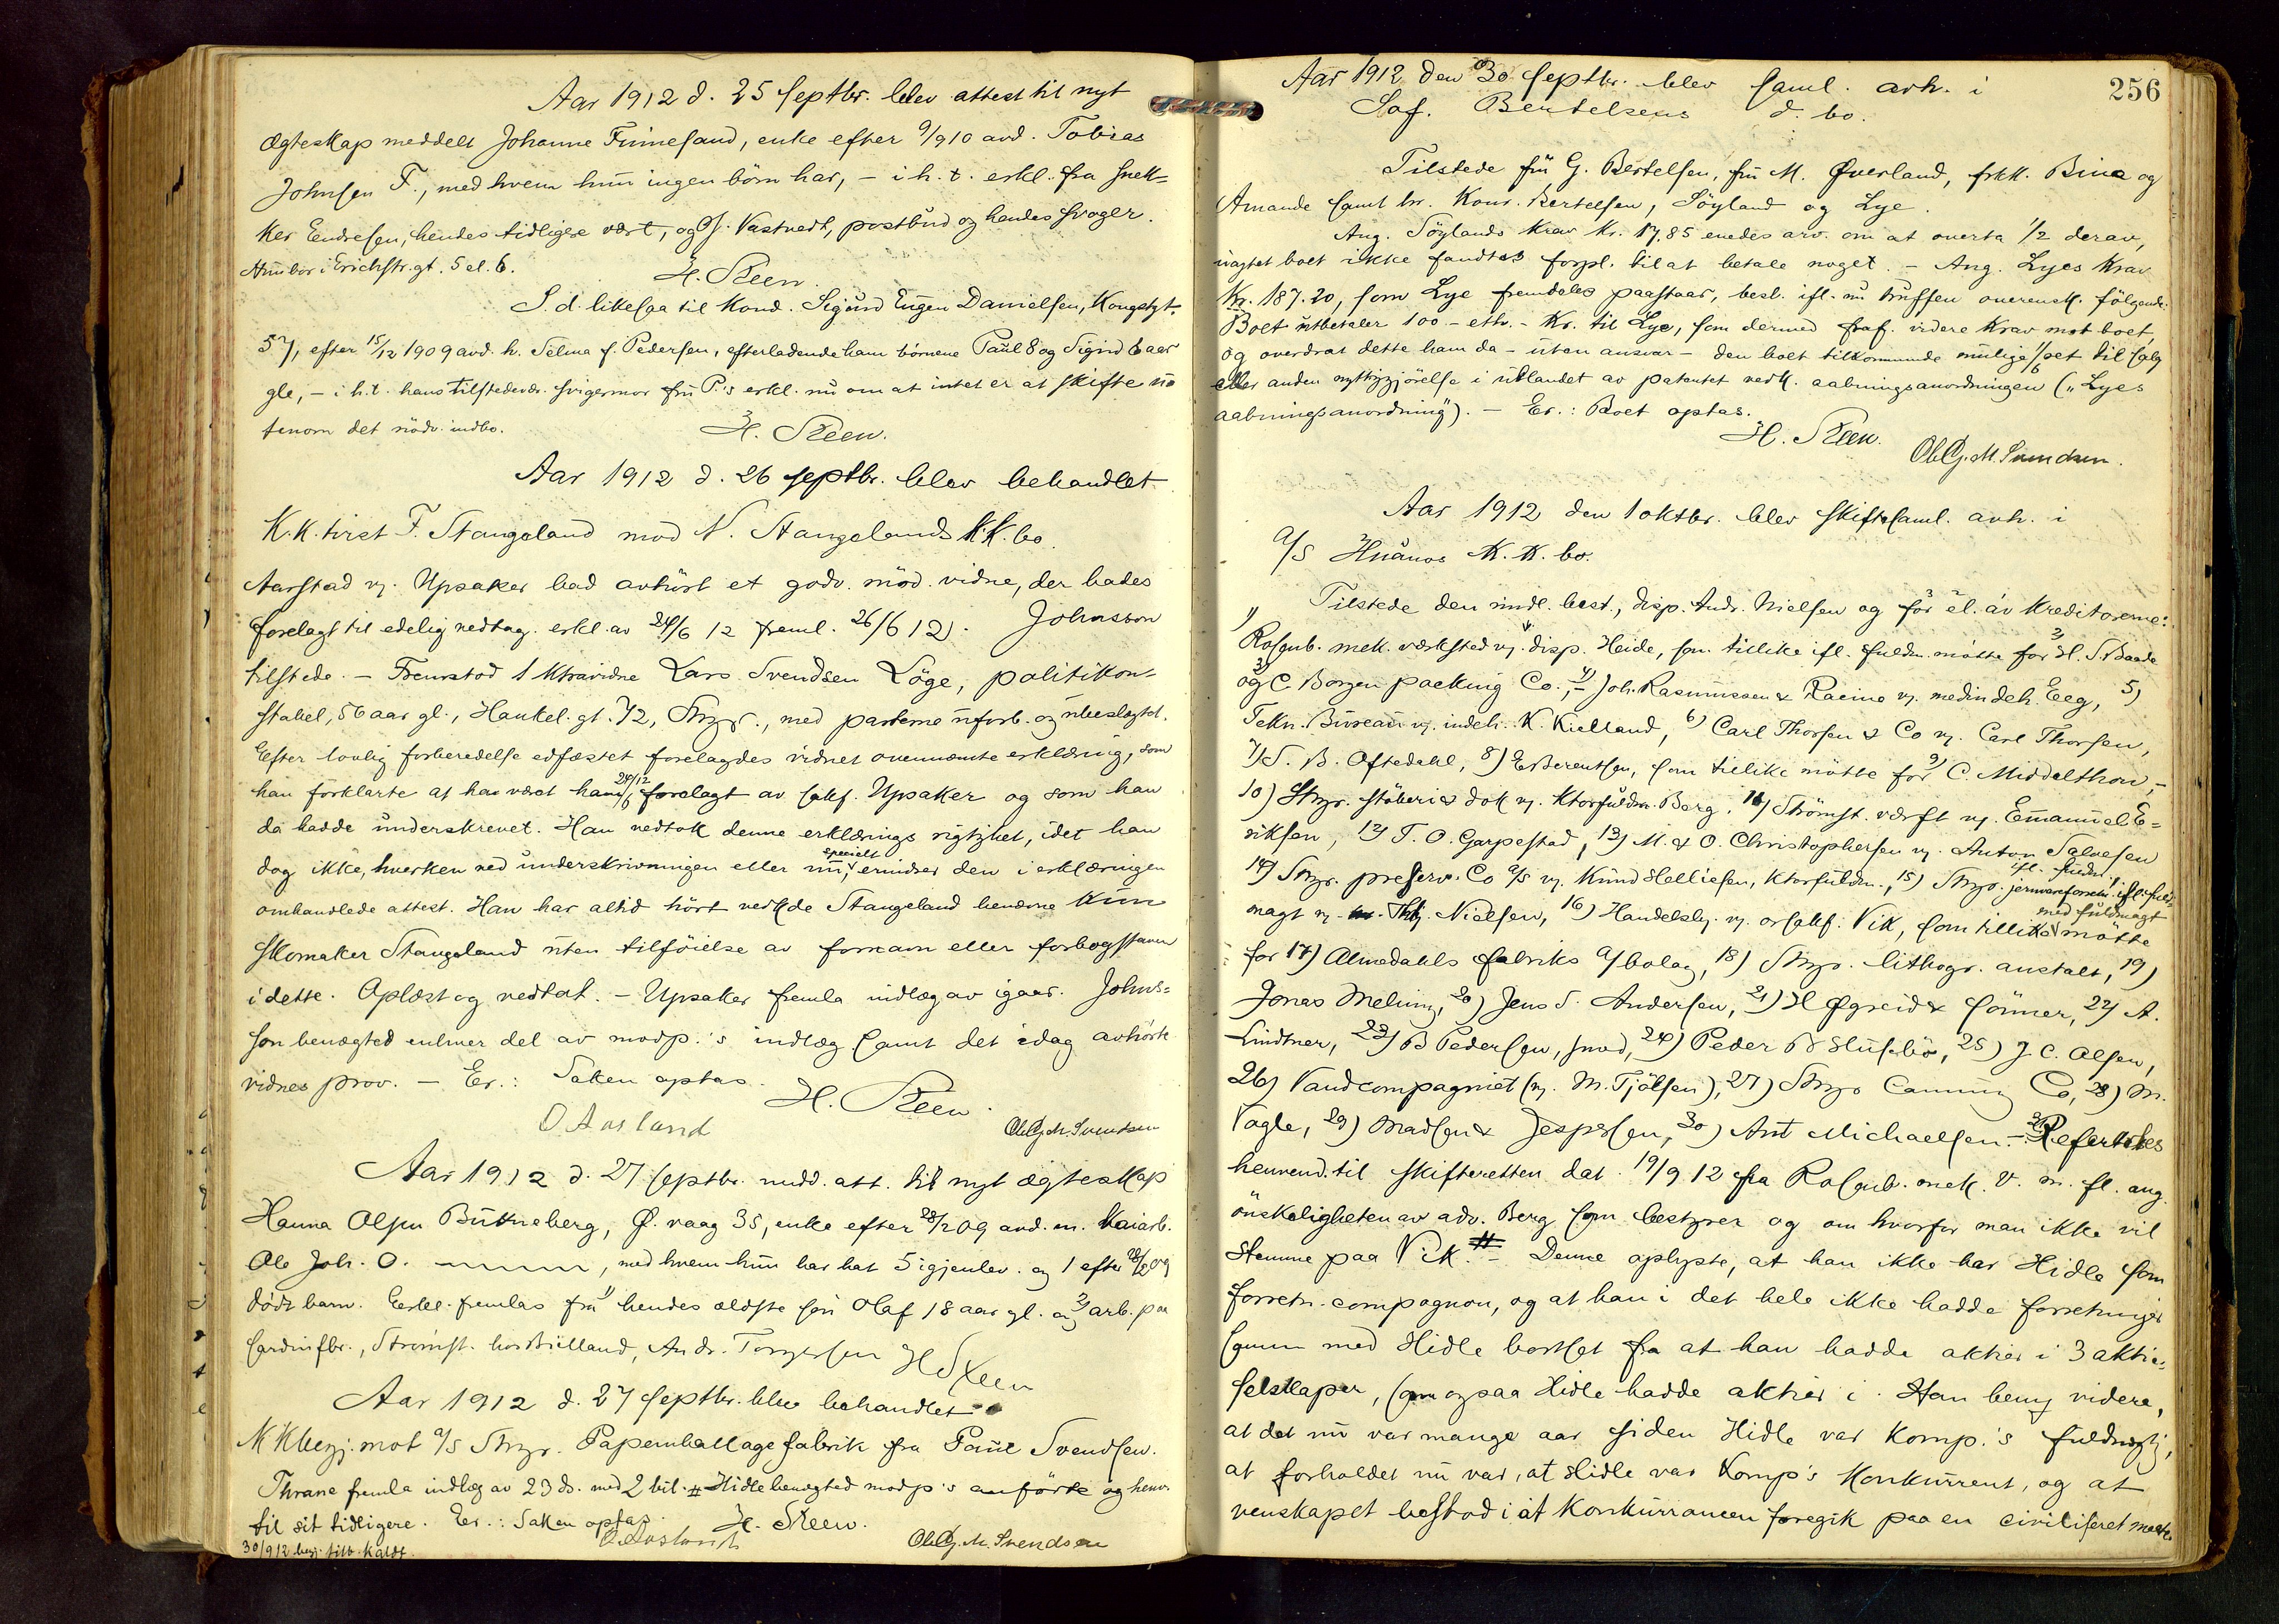 Aar 1912 d. 25 septbr. blev attest til nyt
ægteskap meddelt Johanne Finnesand, enke efter 9/9 10 avd. Tobias
Johnsen F., med hvem hun ingen børn har, – i h. t. erkl. fra snek-
ker Endresen, hendes tidligere vært, og J. Vastvedt, postbud og hendes svoger.
Hun bor i Erichstr.gt. 5 el. 6.
H. Steen.
S. d. likesaa til Kond. Sigurd Eugen Danielsen, Kongsgt.
57, efter 15/12 1909 avd. h. Selma f. Pedersen, efterladende ham børnene Paul 8 og Sigrid 6 aar
gle, – i h. t. hans tilstedevær. svigermor fru P.'s erkl. nu om at intet er at skifte u-
tenom det nödv. indbo.
H. Steen.
Aar 1912 d. 26 septbr. blev behandlet
K.K. tvist F. Stangeland mod N. Stangelands K.K. bo.
Aarstad vj. Upsaker bad avhört et godv. möd. vidne, der bades
forelagt til edelig vedtag. erkl. av 24/6 12 freml. 26/6 12). Johnsson
tilstede. – Fremstod 1 Ktravidne Lars Svendsen Löge, politikon-
stabel, 56 aar gl., Hankel. gt. 72, Stvgr., med parterne uforb. og ubeslægtet.
Efter lovlig forberedelse edfæstet forelagdes vidnet ovennævnte erklæring, som
han forklarte at ha været ham 24/6 12 forelagt av sakf. Upsaker og som han
da hadde underskrevet. Han vedtok denne erklærings rigtighet, idet han
dog ikke, hverken ved underskrivningen eller nu, specielt erindrer den i erklæringen
omhandlede attest. Han har altid hört vedkde Stangeland benævne kun
skomaker Stangeland uten tilföielse av fornavn eller forbogstaver
i dette. Oplæst og vedtat. – Upsaker fremla indlæg av igaar. Johns-
son benægted enhver del av modp.'s indlæg samt det idag avhörte
vidnes prov. – Er.: Saken optas.
H. Steen.
O Aasland
Ole G. M. Svendsen
Aar 1912 d. 27 septbr. medd. att. til nyt ægteskap
Hanna Olsen Bukneberg, Ø. vaag 35, enke efter 28/2 09 avd. m. Kaiarb.
Ole Joh. O. , med hvem hun har hat 5 igjenlev. og 1 efter 28/2 09
födt barn. Erkl. fremlas fra 1) hendes ældste sön Olaf 18 aar gl. og 2) arb. paa
sardinfbr., Strömst. hos Bielland, Andr. Torgersen H Steen
Aar 1912 d. 27 septbr. blev behandlet
K K begj. mot A/S Stvgr. Papemballagefabrik fra Paul Svendsen.
Thrane fremla indlæg av 23 ds. med 2 bil. # Hidle benægted modp's anförte og henv.
til sit tidligere. Er.: Saken optas. H. Steen.
O. Aasland
Ole G. M. Svendsen
30/9 12 begj. tilb. kaldt.
256
Aar 1912 den 30 septbr. blev saml. avh. i
Sof. Bertelsens d. bo.
Tilstede fru G. Bertelsen, fru M. Qverland, frkk. Bina og
Amande samt hr. Konr. Bertelsen, Söyland og Lye.
Ang. Söylands krav kr. 17,85 enedes arv. om at overta 1/2 derav,
uagtet boet ikke fandtes forpl. til at betale noget. – Ang. Lyes krav
kr. 187.20, som Lye fremdeles paastaar, besl. ifl. nu truffen overensk. fölgende:
Boet utbetaler 100 – ethr. – kr. til Lye, som dermed fraf. videre krav mot boet,
og overdrar dette ham da – uten ansvar – den boet tilkommende mulige 1/6 pct til salg
eller anden nyttiggjörelse i utlandet av patentet vedk. aabningsanordningen („Lyes
aabningsanordning"). – Er.: Boet optas.
H. Steen.
Ole G. M. Svendsen.
Aar 1912 den 1 oktbr. blev skiftesaml. avh. i
A/S Huanos K. K. bo.
Tilstede den midl. best., disp. Andr. Nielsen og för el. av kreditorerne:
1) Rosenb. mek. værksted vj. disp. Heide, som tillike ifl. fuldm. mötte for 2) H. S. Baade
og 3) C. Borgen packing Co., 4) Joh. Rasmussen & Racine vj. medindeh. Eeg, 5)
Tekn. Bureau vj. indeh. K. Kielland, 6) Carl Thorsen & Co vj. Carl Thorsen,
7) S. B. Oftedahl, 8) E Berentsen, som tillike mötte for 9) C. Middelthon, –
10) Stvgr. stöberi & dok vj. ktorfuldm. Berg, 11) Strömst. værft vj. Emanuel E-
riksen, 12) T. O. Garpestad, 13) M. & O. Christophersen vj. Anton Salvesen
ifl. fuldm.,
14) Stvgr. preserv. Co A/S vj. Knud Helliesen, ktorfuldm., 15) Stvgr. jernvareforretn. ifl. fuld-
magt vj. Thj. Nielsen, 16) Handelsbj. vj. orsakf. Vik, som tillike med fuldmagt mötte
for 17) Almedahls fabriks A/bolag, 18) Stvgr. lithogr. anstalt, 19)
Jonas Meling, 20) Jens S. Andersen, 21) H Øgreid & sönner, 22) A.
Lindtner, 23) B Pedersen, smed, 24) Peder Husebö, 25) J. C. Olsen,
26) Vandcompagniet (vj. M. Tjölsen), 27) Stvgr Canning Co, 28) M.
Vagle, 29) Madsen & Jespersen, 30) Ant Michaelsen. – Refertes
henvend. til skifteretten dat. 19/9 12 fra Rosenb. mek. V. m. fl. ang.
önskeligheten av adv. Berg som bestyrer og om hvorfor man ikke vil
stemme paa Vik. – Denne oplyste, at han ikke har Hidle som
forretn. compagnon, og at han i det hele ikke hadde forretninger
smen med Hidle bortset fra at han hadde aktier i 3 aktie-
selskaper, som ogsaa Hidle hadde aktier i. Han bemj videre,
at det nu var mange aar siden Hidle var Komp.'s fuldmægtig,
at forholdet nu var, at Hidle var Komp's konkurrent, og at
venskapet bestod i at konkurrancen foregik paa en civiliseret maate